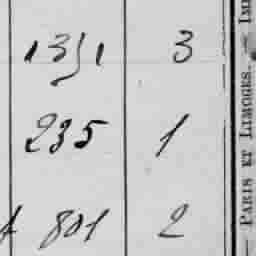 1351 3
235 1
801 2
PARIS ET LIMOGES. —